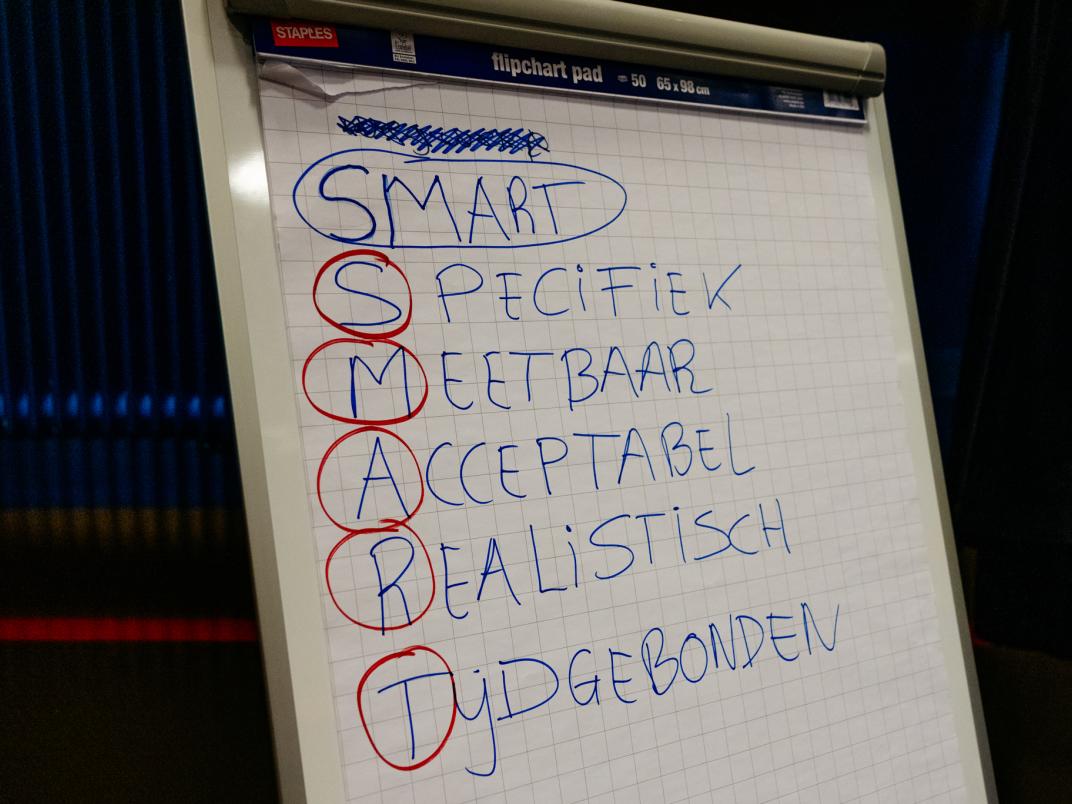 STAPLES
flipchart pad 50 65 x 98 cm
SMART
SPECiFiEK
MEETBAAR
ACCEPTABEL
REALiSTiSCH
TijDGEBONDEN